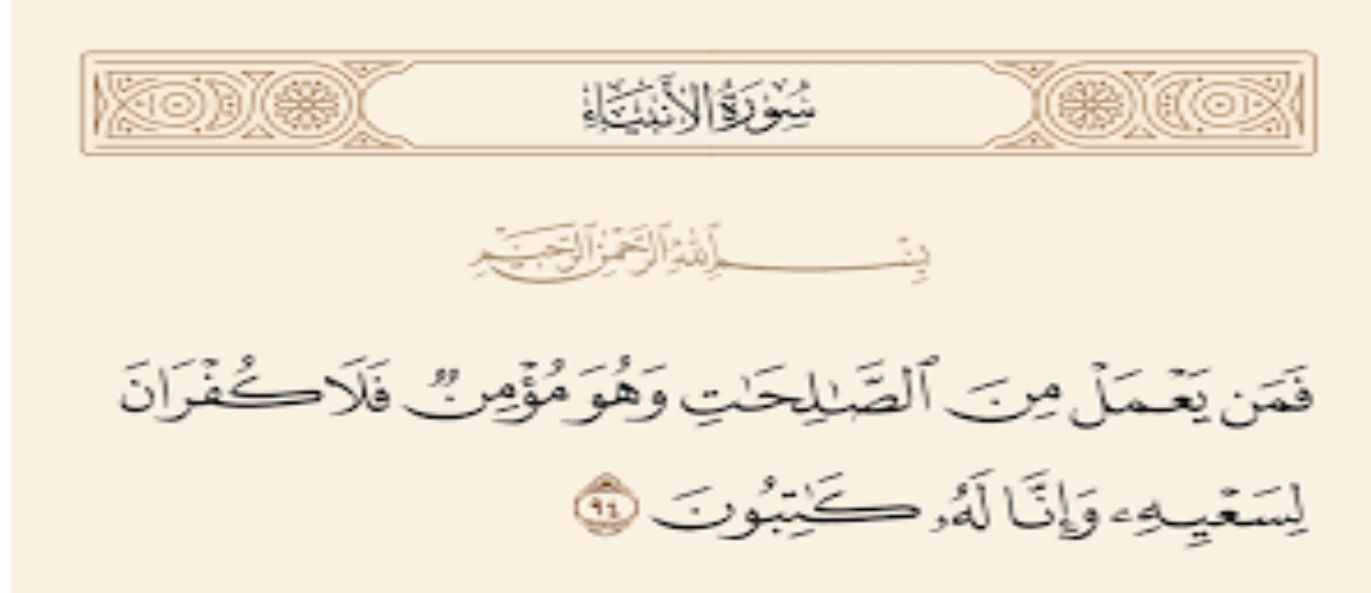 سُورَةُ الأَنبِيَاءِ
بِسْمِ ٱللَّهِ ٱلرَّحْمَٰنِ ٱلرَّحِيمِ
فَمَن يَعْمَلْ مِنَ ٱلصَّٰلِحَٰتِ وَهُوَ مُؤْمِنٌ فَلَا كُفْرَانَ
لِسَعْيِهِۦ وَإِنَّا لَهُۥ كَٰتِبُونَ ٩٤